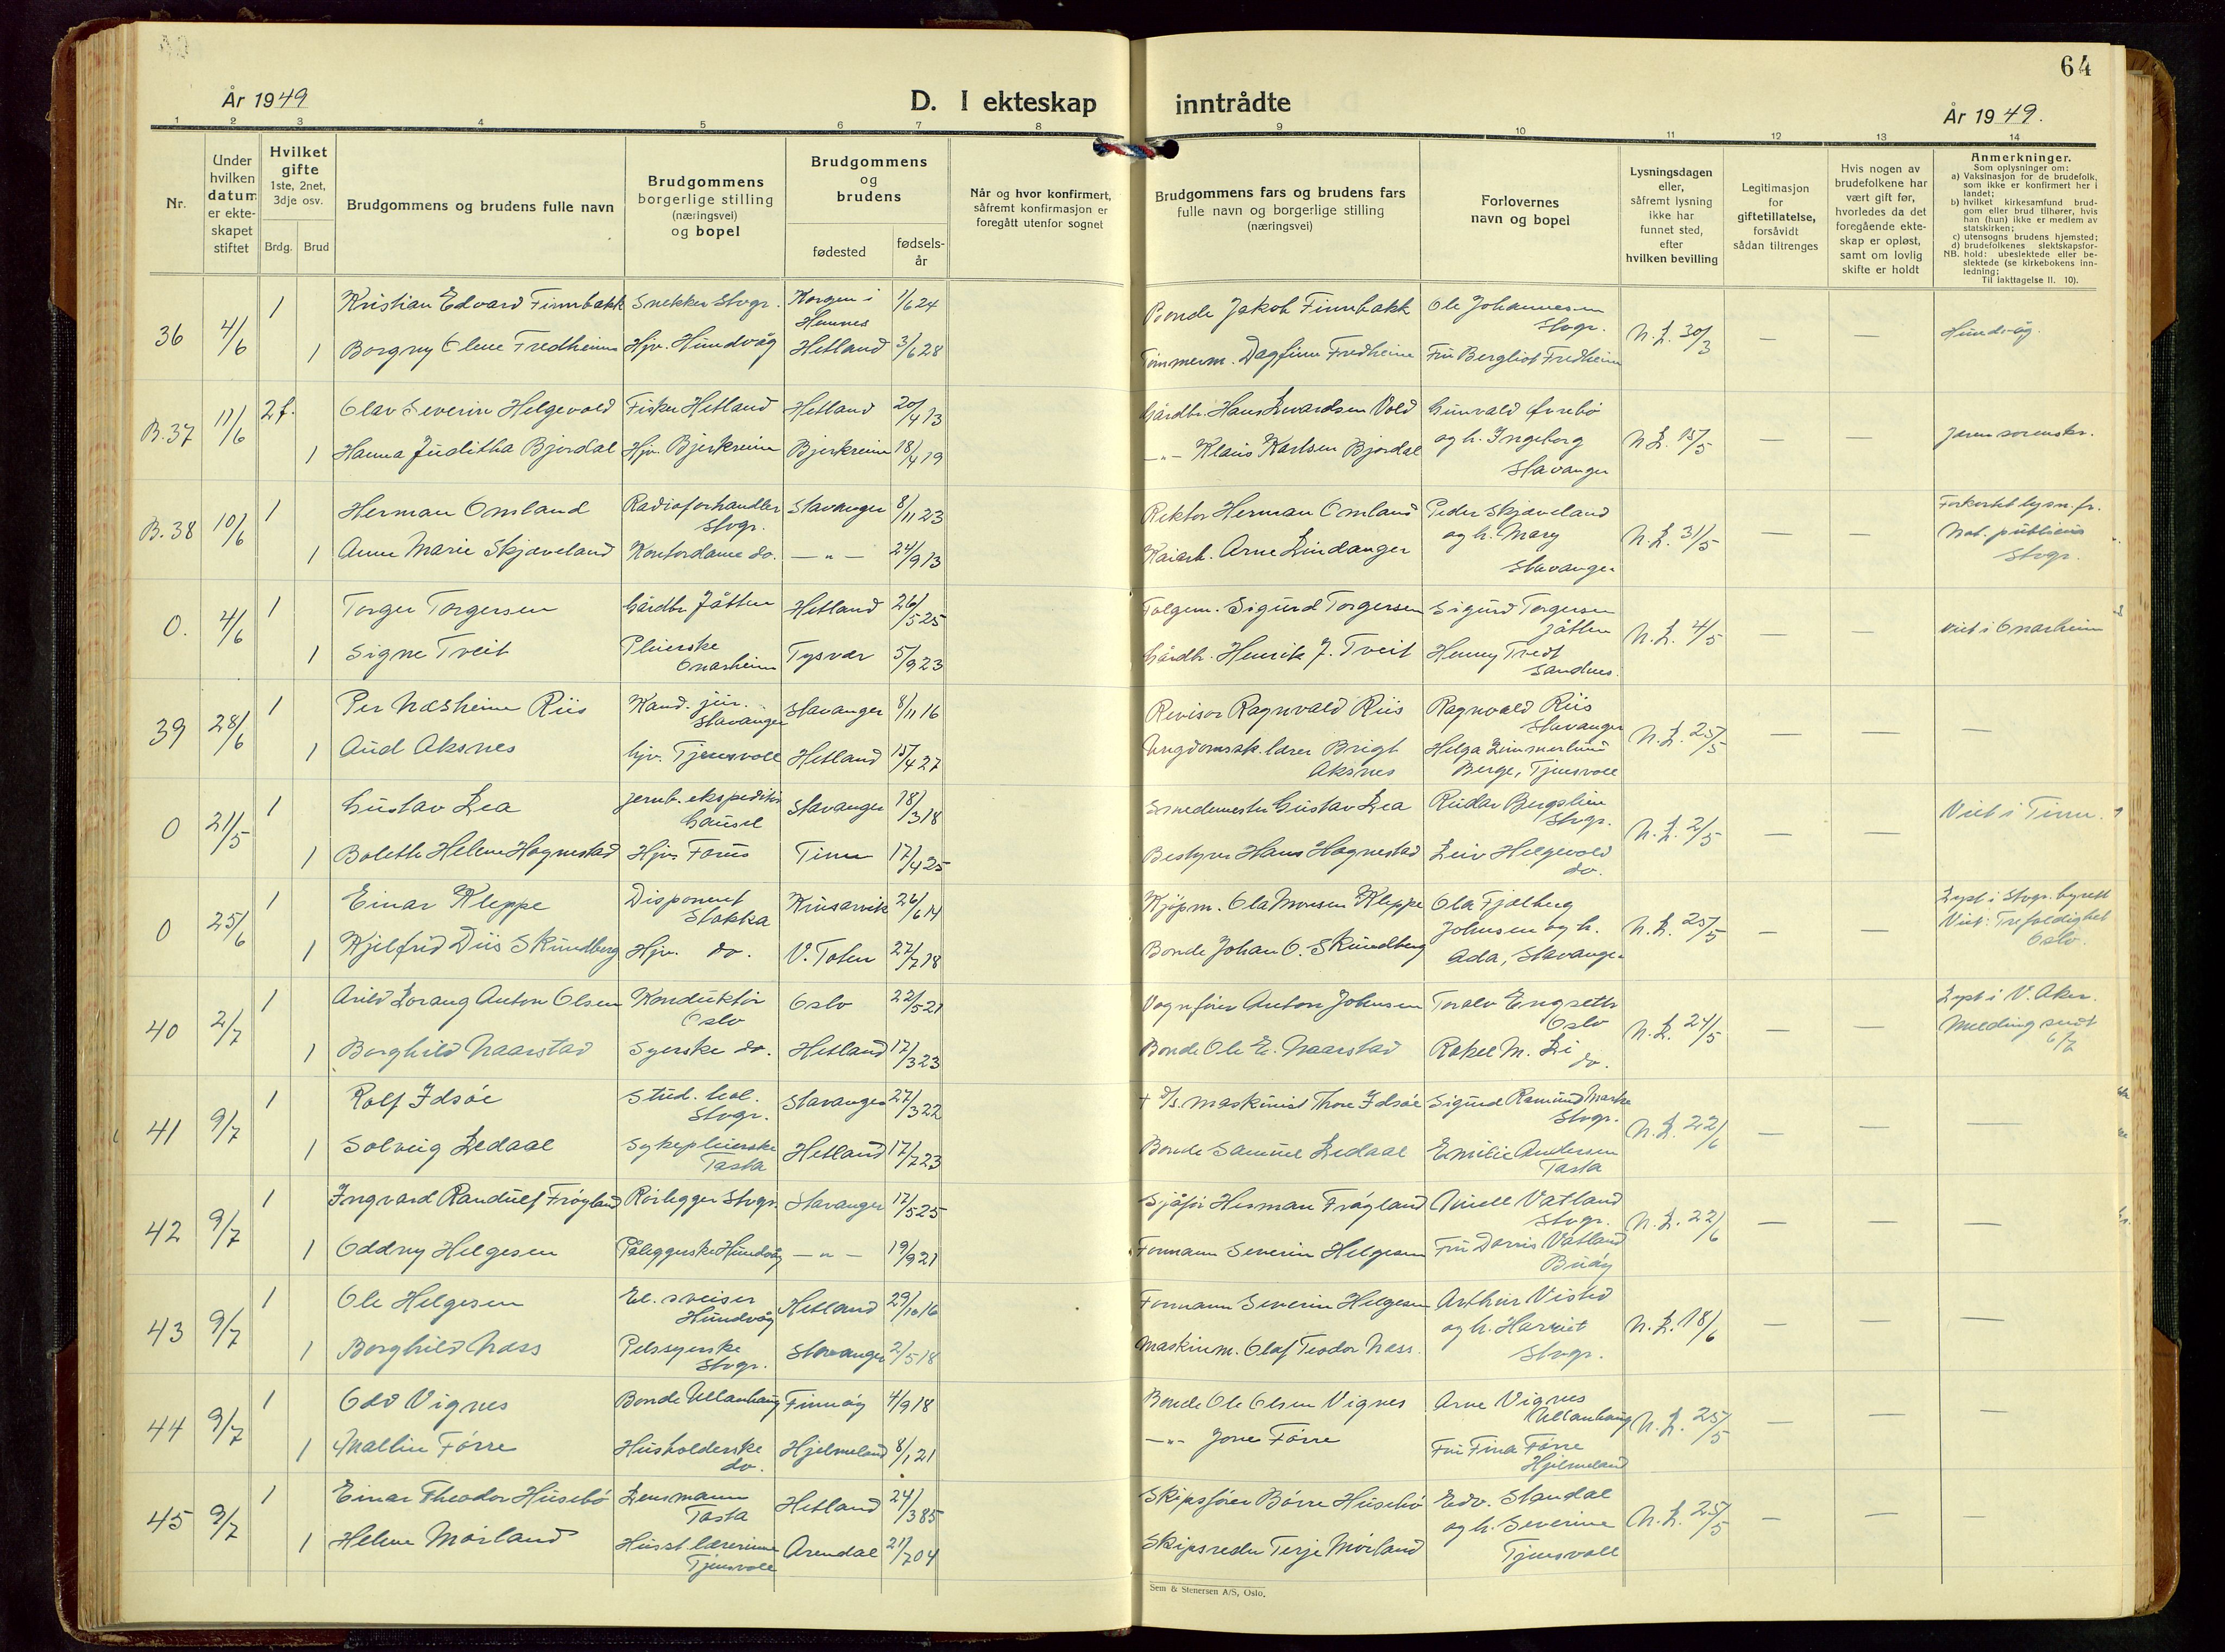 64
År 1949
D. I ekteskap inntrådte
År 1949.
1 2 3 4 5 6 7 8 9 10 11 12 13 14
Nr.
Under hvilken datum er ekte-skapet stiftet
Hvilket gifte
1ste, 2net, 3dje osv.
Brdg. Brud
Brudgommens og brudens fulle navn
Brudgommens borgerlige stilling (næringsvei) og bopel
Brudgommens og brudens
fødested
fødsels-år
Når og hvor konfirmert, såfremt konfirmasjon er foregått utenfor sognet
Brudgommens fars og brudens fars fulle navn og borgerlige stilling (næringsvei)
Forlovernes navn og bopel
Lysningsdagen eller, såfremt lysning ikke har funnet sted, efter hvilken bevilling
Legitimasjon for giftetillatelse, forsåvidt sådan tiltrenges
Hvis nogen av brudefolkene har vært gift før, hvorledes da det foregående ekte-skap er opløst, samt om lovlig skifte er holdt
Anmerkninger.
Som oplysninger om:
a) Vaksinasjon for de brudefolk, som ikke er konfirmert her i landet;
b) hvilket kirkesamfund brud-gom eller brud tilhører, hvis han (hun) ikke er medlem av statskirken;
c) utensogns brudens hjemsted;
d) brudefolkenes slektskapsfor-hold: ubeslektede eller be-slektede (se kirkebokens inn-ledning;
NB.
Til iakttagelse II. 10).
36 4/6 1 Kristian Edvard Finnbakk Snekker Stvgr. Korgen i Hemnes 1/6 24 Bonde Jakob Finnbakk Ole Johannesen Stvgr. N.L. 30/3 — — Hundvåg.
1 Borgny Elene Fredheim Hjv. Hundvåg Hetland 3/6 28 Tømmerm. Dagfinn Fredheim Fru Bergliot Fredheim
B.37 11/6 2 f. Olav Severin Helgevold Fisker Hetland Hetland 20/4 13 Gårdbr. Hans Edvardsen Vold Gunvald Øvrebø N.L. 15/5 — — Jæren sorenskr.
1 Hanna Juditha Bjordal Hjv. Bjerkreim Bjerkreim 18/4 19 —"— Klaus Karlsen Bjordal og h. Ingeborg Stavanger
B.38 10/6 1 Herman Omland Radioforhandler Stvgr. Stavanger 8/11 23 Rektor Herman Omland Peder Skjæveland N.L. 31/5 — — Forkortet lysn. fr. Not. publicus Stvgr.
1 Anne Marie Skjæveland Kontordame do. —"— 24/9 13 Kaiarb. Arne Lindanger og h. Mary Stavanger
O. 4/6 1 Torger Torgersen Gårdbr. Jåtten Hetland 26/5 25 Tolgem. Sigurd Torgersen Sigurd Torgersen Jåtten N.L. 4/5 — — Viet i Onarheim
1 Signe Tveit Pleierske Onarheim Tysvær 5/9 23 Gårdbr. Henrik J. Tveit Henny Tvedt Sandnes
39 28/6 1 Per Næsheim Riis Kand. jur. Stavanger Stavanger 8/11 16 Revisor Ragnvald Riis Ragnvald Riis Stavanger N.L. 25/5 — — —
1 Aud Aksnes Hjv. Tjensvoll Hetland 15/4 27 Ungdomssk. lærer Brigt Aksnes Helga Zimmerlund Berge, Tjensvoll
O 21/5 1 Gustav Lea Jernb. ekspeditør Gausel Stavanger 18/3 18 Smedemester Gustav Lea Reidar Bergslien Stvgr. N.L. 2/5 — — Viet i Time.
1 Bolette Helene Hognestad Hjv. Forus Time 17/4 25 Bestyrer Hans Hognestad Leiv Helgevold do.
O 25/6 1 Einar Kleppe Disponent Stokka Krusarvik 26/6 14 Kjøpm. Ola Monsen Kleppe Ola Fjælberg N.L. 25/5 — — Lyst i Stvgr. byrett
1 Kjelfrid Diis Skundberg Hjv. do. V. Toten 27/7 18 Bonde Johan O. Skundberg Johnsen og h. Ada, Stavanger Viet: Trefoldighet Oslo.
40 2/7 1 Arild Lorang Anton Olsen Konduktør Oslo Oslo 22/5 21 Vognfører Anton Johnsen Toralv Engseth Oslo N.L. 24/5 — — Lyst i V. Aker. Melding sendt 6/7
1 Borghild Naarstad Syerske do. Hetland 17/3 23 Bonde Ole E. Naarstad Rakel M. Li do.
41 9/7 1 Rolf Idsøe Stud. Stvgr. Stavanger 27/3 22 + D/s. maskinist Thore Idsøe Sigurd Ramund Stvgr. N.L. 22/6 — — —
1 Solveig Ledaal Sykepleierske Tasta Hetland 17/7 23 Bonde Samuel Ledaal Emilie Andersen Tasta
42 9/7 1 Ingvard Randulf Frøyland Rørlegger Stvgr. Stavanger 17/5 25 Sjåfør Herman Frøyland Amell Vatland Stvgr. N.L. 22/6 — — —
1 Oddny Helgesen Påleggerske Hundvåg —"— 19/9 21 Formann Severin Helgesen Fru Dorris Vatland Buøy
43 9/7 1 Ole Helgesen El. sveiser Hundvåg Hetland 29/10 16 Formann Severin Helgesen Arthur Visted N.L. 18/6 — — —
1 Borghild Næss Pelssyerske Stvgr. Stavanger 2/5 18 Maskinm. Olaf Teodor Næss. og h. Harriet Stvgr.
44 9/7 1 Odd Vignes Bonde Ullanhaug Finnøy 4/9 18 Bonde Ole Olsen Vignes Arne Vignes Ullanhaug N.L. 25/5 — — —
1 Mallin Førre Husholderske do. Hjelmeland 8/1 21 —"— Jone Førre Fru Fina Førre Hjelmeland
45 9/7 1 Einar Theodor Husebø Lensmann Tasta Hetland 24/3 85 Skipsfører Børre Husebø Edv. Standal N.L. 25/5 — — —
1 Helene Mørland Husst. lærerinne Tjensvoll Arendal 21/7 04 Skipsreder Terje Mørland og h. Severine Tjensvoll
Sem & Stenersen A/S, Oslo.